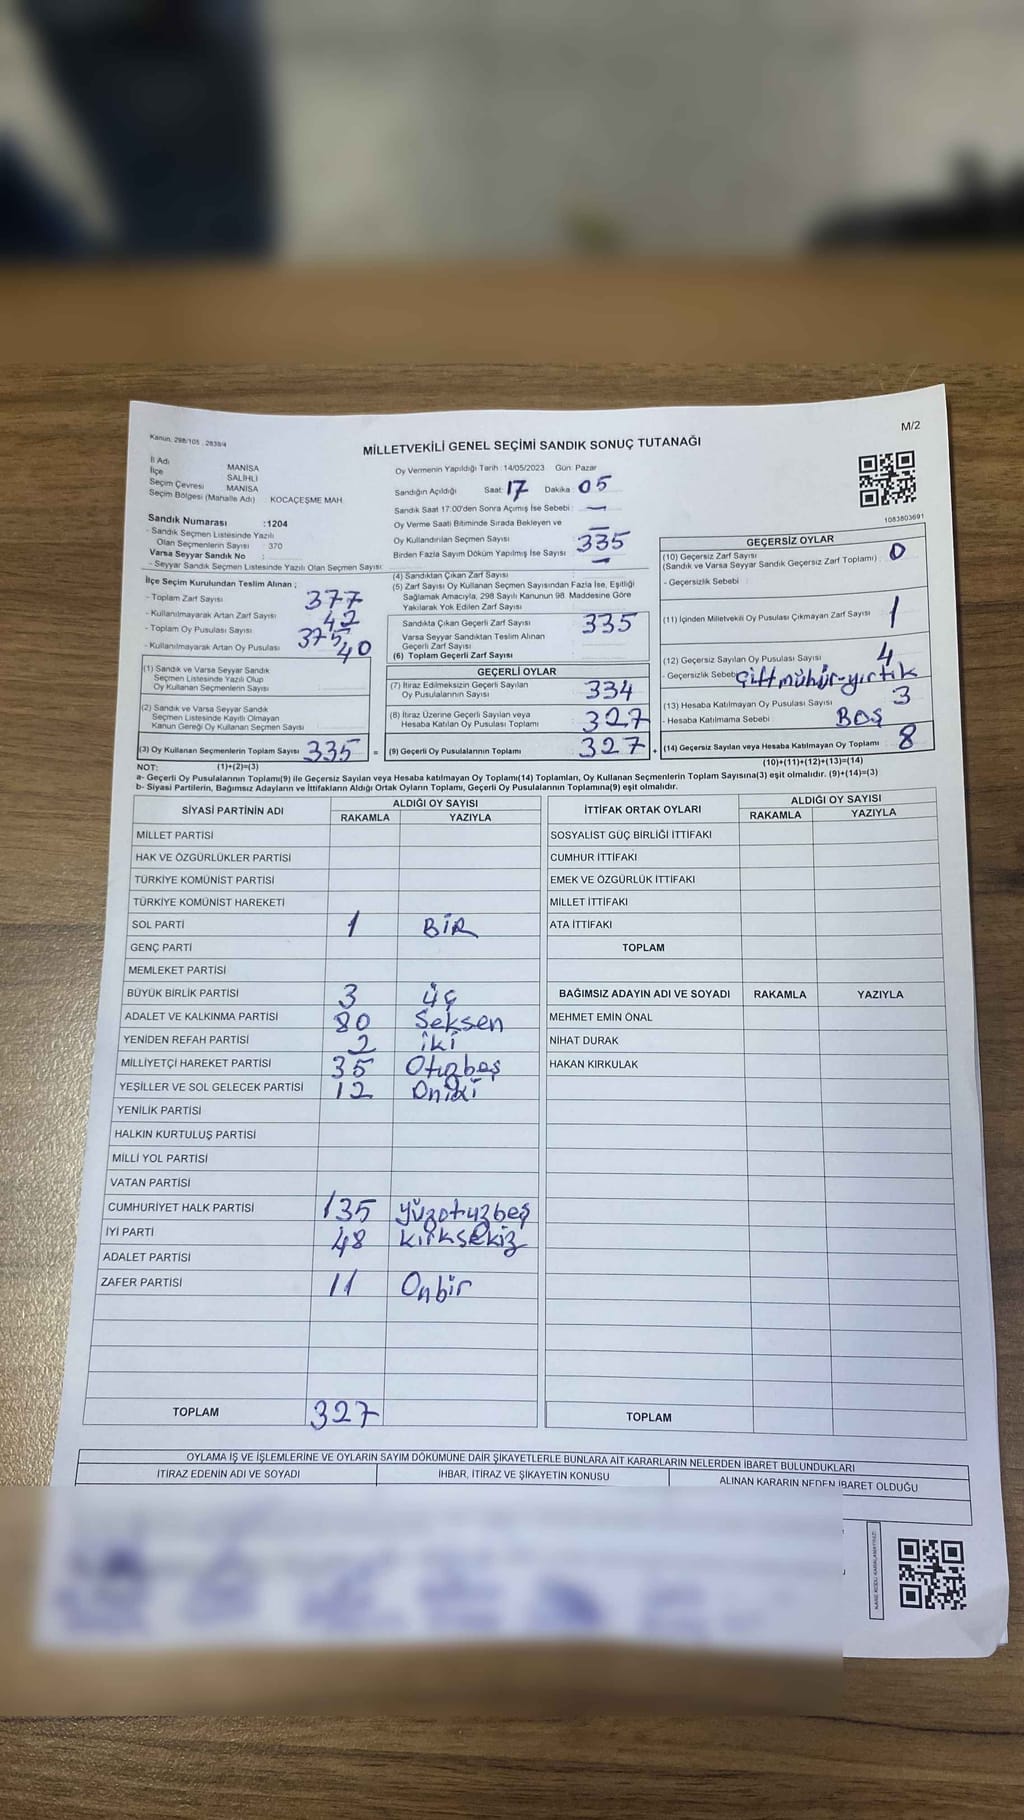 Kanun, 298/105 , 2839/4
M/2
MİLLETVEKİLİ GENEL SEÇİMİ SANDIK SONUÇ TUTANAĞI
İl Adı MANİSA
İlçe SALİHLİ
Seçim Çevresi MANİSA
Seçim Bölgesi (Mahalle Adı) KOCAÇEŞME MAH.
Sandık Numarası :1204
- Sandık Seçmen Listesinde Yazılı
Olan Seçmenlerin Sayısı 370
Varsa Seyyar Sandık No :
- Seyyar Sandık Seçmen Listesinde Yazılı Olan Seçmen Sayısı:
Oy Vermenin Yapıldığı Tarih :14/05/2023 Gün: Pazar
Sandığın Açıldığı Saat: 17 Dakika : 05
Sandık Saat 17:00'den Sonra Açılmış İse Sebebi : —
Oy Verme Saati Bitiminde Sırada Bekleyen ve
Oy Kullandırılan Seçmen Sayısı : —
335
Birden Fazla Sayım Döküm Yapılmış İse Sayısı : —
1083803691
İlçe Seçim Kurulundan Teslim Alınan ;
- Toplam Zarf Sayısı 377
- Kullanılmayarak Artan Zarf Sayısı 42
- Toplam Oy Pusulası Sayısı 375
- Kullanılmayarak Artan Oy Pusulası 40
(1) Sandık ve Varsa Seyyar Sandık
Seçmen Listesinde Yazılı Olup
Oy Kullanan Seçmenlerin Sayısı
(2) Sandık ve Varsa Seyyar Sandık
Seçmen Listesinde Kayıtlı Olmayan
Kanun Gereği Oy Kullanan Seçmen Sayısı
(3) Oy Kullanan Seçmenlerin Toplam Sayısı 335 =
(4) Sandıktan Çıkan Zarf Sayısı
(5) Zarf Sayısı Oy Kullanan Seçmen Sayısından Fazla İse, Eşitliği
Sağlamak Amacıyla, 298 Sayılı Kanunun 98. Maddesine Göre
Yakılarak Yok Edilen Zarf Sayısı
Sandıkta Çıkan Geçerli Zarf Sayısı 335
Varsa Seyyar Sandıktan Teslim Alınan
Geçerli Zarf Sayısı
(6) Toplam Geçerli Zarf Sayısı
GEÇERLİ OYLAR
(7) İtiraz Edilmeksizin Geçerli Sayılan
Oy Pusulalarının Sayısı 334
(8) İtiraz Üzerine Geçerli Sayılan veya
Hesaba Katılan Oy Pusulası Toplamı 327
(9) Geçerli Oy Pusulalarının Toplamı 327
GEÇERSİZ OYLAR
(10) Geçersiz Zarf Sayısı
(Sandık ve Varsa Seyyar Sandık Geçersiz Zarf Toplamı) : 0
- Geçersizlik Sebebi :
(11) İçinden Milletvekili Oy Pusulası Çıkmayan Zarf Sayısı 1
(12) Geçersiz Sayılan Oy Pusulası Sayısı 4
- Geçersizlik Sebebi Çift mühür-yırtık
(13) Hesaba Katılmayan Oy Pusulası Sayısı 3
- Hesaba Katılmama Sebebi : BOŞ
(14) Geçersiz Sayılan veya Hesaba Katılmayan Oy Toplamı 8
NOT: (1)+(2)=(3)
(10)+(11)+(12)+(13)=(14)
a- Geçerli Oy Pusulalarının Toplamı(9) ile Geçersiz Sayılan veya Hesaba katılmayan Oy Toplamı(14) Toplamları, Oy Kullanan Seçmenlerin Toplam Sayısına(3) eşit olmalıdır. (9)+(14)=(3)
b- Siyasi Partilerin, Bağımsız Adayların ve İttifakların Aldığı Ortak Oyların Toplamı, Geçerli Oy Pusulalarının Toplamına(9) eşit olmalıdır.
SİYASİ PARTİNİN ADI ALDIĞI OY SAYISI
RAKAMLA YAZIYLA
MİLLET PARTİSİ
HAK VE ÖZGÜRLÜKLER PARTİSİ
TÜRKİYE KOMÜNİST PARTİSİ
TÜRKİYE KOMÜNİST HAREKETİ
SOL PARTİ 1 BİR
GENÇ PARTİ
MEMLEKET PARTİSİ
BÜYÜK BİRLİK PARTİSİ 3 üç
ADALET VE KALKINMA PARTİSİ 80 Seksen
YENİDEN REFAH PARTİSİ 2 iki
MİLLİYETÇİ HAREKET PARTİSİ 35 Otuzbeş
YEŞİLLER VE SOL GELECEK PARTİSİ 12 Oniki
YENİLİK PARTİSİ
HALKIN KURTULUŞ PARTİSİ
MİLLİ YOL PARTİSİ
VATAN PARTİSİ
CUMHURİYET HALK PARTİSİ 135 yüzotuzbeş
İYİ PARTİ 48 kırksekiz
ADALET PARTİSİ
ZAFER PARTİSİ 11 Onbir
TOPLAM 327
İTTİFAK ORTAK OYLARI ALDIĞI OY SAYISI
RAKAMLA YAZIYLA
SOSYALİST GÜÇ BİRLİĞİ İTTİFAKI
CUMHUR İTTİFAKI
EMEK VE ÖZGÜRLÜK İTTİFAKI
MİLLET İTTİFAKI
ATA İTTİFAKI
TOPLAM
BAĞIMSIZ ADAYIN ADI VE SOYADI RAKAMLA YAZIYLA
MEHMET EMİN ÖNAL
NİHAT DURAK
HAKAN KIRKULAK
TOPLAM
OYLAMA İŞ VE İŞLEMLERİNE VE OYLARIN SAYIM DÖKÜMÜNE DAİR ŞİKAYETLERLE BUNLARA AİT KARARLARIN NELERDEN İBARET BULUNDUKLARI
İTİRAZ EDENİN ADI VE SOYADI İHBAR, İTİRAZ VE ŞİKAYETİN KONUSU ALINAN KARARIN NEDEN İBARET OLDUĞU